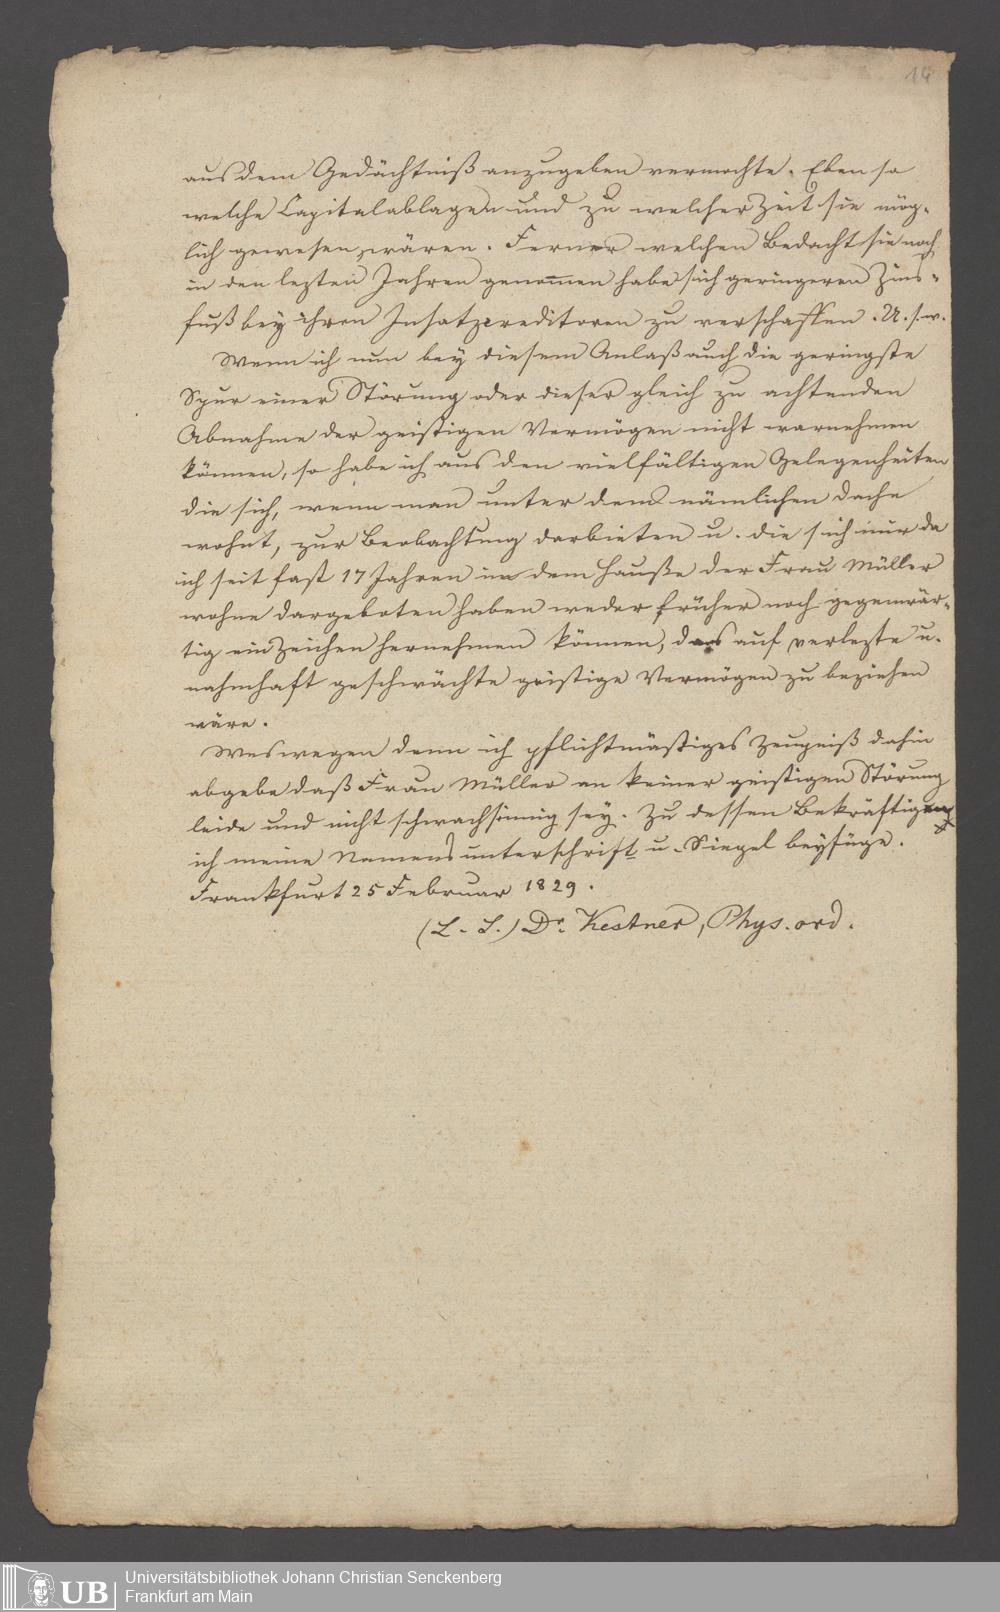 14
aus dem Gedächtniß anzugeben vermochte. Eben so
welche Capitalablagen und zu welcher Zeit sie mög-
lich gewesen wären. Ferner welchen Bedacht sie noch
in den lezten Jahren genommen habe sich geringeren Zins-
fuß bey ihren Insatzcreditoren zu verschaffen. U. s. w.
Wenn ich nun bey diesem Anlaß auch die geringste
Spur einer Störung oder dieser gleich zu achtenden
Abnahme der geistigen Vermögen nicht warnehmen
können, so habe ich aus den vielfältigen Gelegenheiten
die sich, wenn man unter dem nämlichen Dache
wohnt, zur Beobachtung darbieten u. die sich mir da
ich seit fast 17 Jahren in dem Hauße der Frau Müller
wohne dargeboten haben weder früher noch gegenwär-
tig ein Zeichen hernehmen können, das auf verlezte u.
nahmhaft geschwächte geistige Vermögen zu beziehen
wäre.
Weswegen denn ich pflichtmäßiges Zeugniß dahin
abgebe daß Frau Müller an keiner geistigen Störung
leide und nicht schwachsinnig sey. Zu dessen Bekräftigung
ich meine Namensunterschrift u. Siegel beyfüge.
Frankfurt 25 Februar 1829.
(L. S.) Dr. Kestner, Phys. ord.
UB Universitätsbibliothek Johann Christian Senckenberg
Frankfurt am Main